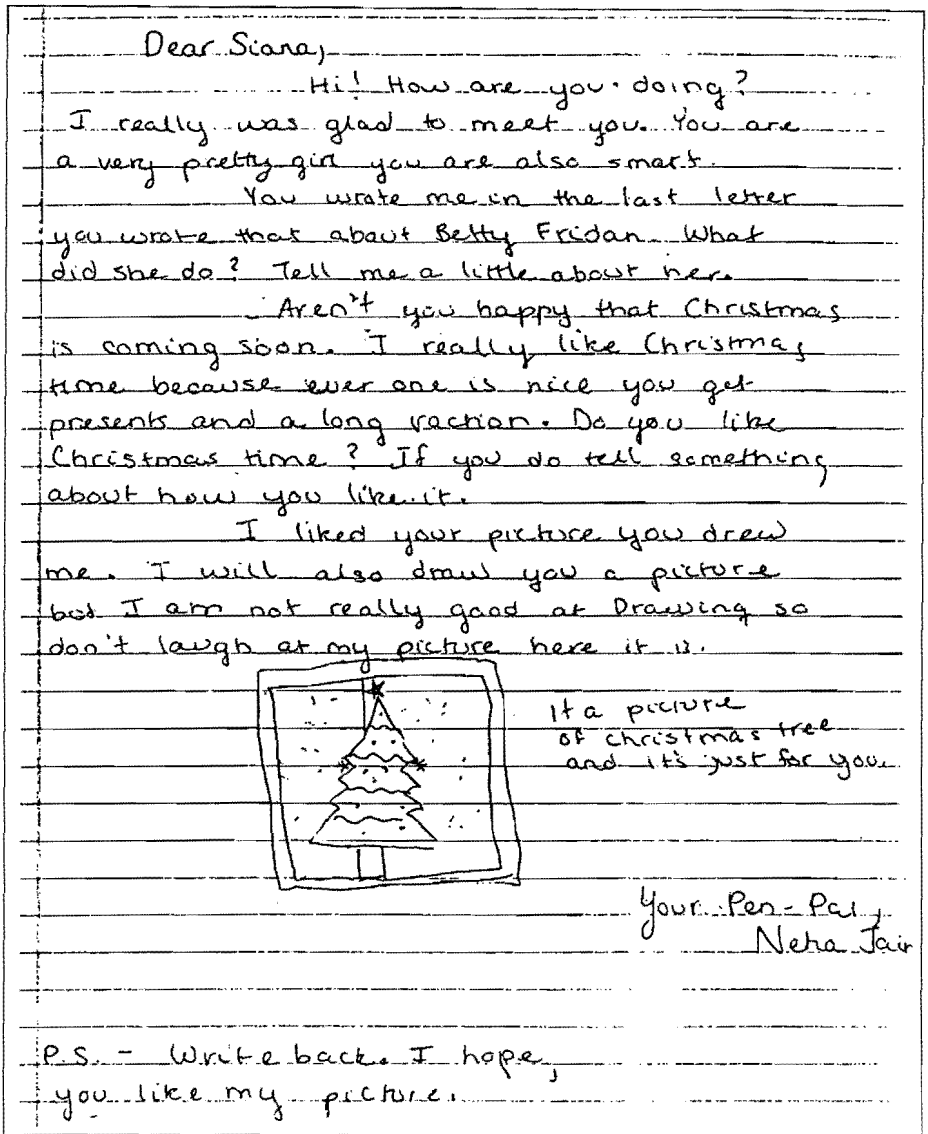 Dear Siana,
Hi! How are you doing?
I really was glad to meet you. You are
a very pretty girl you are also smart.
You wrote me in the last letter
you wrote that about Betty Fridan. What
did she do? Tell me a little about her.
Aren't you happy that Christmas
is coming soon. I really like Christmas
time because ever one is nice you get
presents and a long vaction. Do you like
Christmas time? If you do tell something
about how you like it.
I liked your picture you drew
me. I will also draw you a picture
but I am not really good at Drawing so
don't laugh at my picture here it is.
It a picture
of christmas tree
and it's just for you.
Your Pen-Pal,
Neha Jain
P.S. - Write back. I hope,
you like my picture.